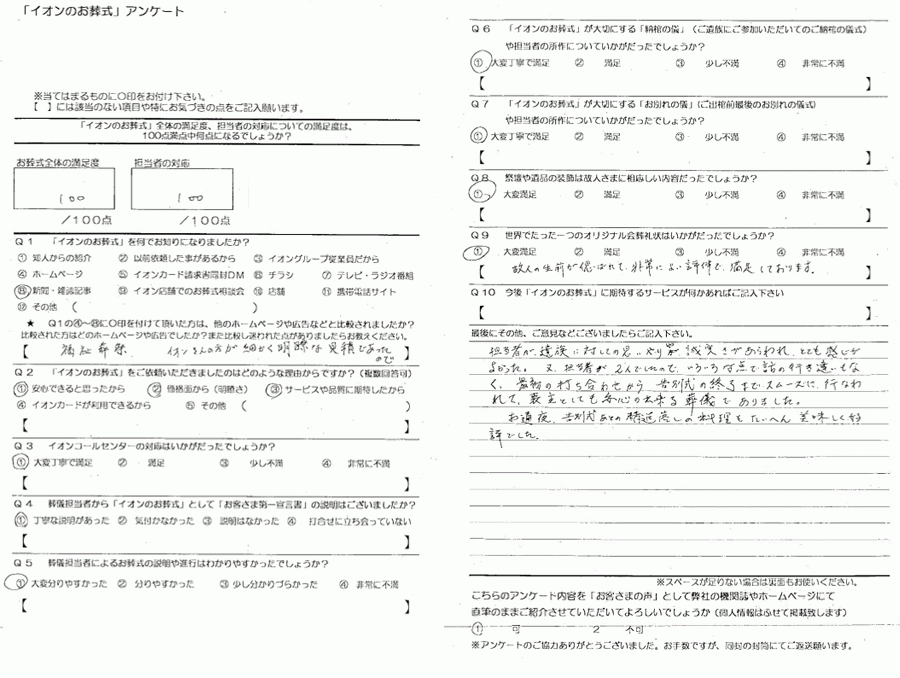 「イオンのお葬式」アンケート
※当てはまるものに〇印をお付け下さい。
【　】には該当のない項目や特にお気づきの点をご記入願います。
「イオンのお葬式」全体の満足度、担当者の対応についての満足度は、
100点満点中何点になるでしょうか？
お葬式全体の満足度　担当者の対応
100　100
／100点　／100点
Q１　「イオンのお葬式」を何でお知りになりましたか？
① 知人からの紹介　② 以前依頼した事があるから　③ イオングループ従業員だから
④ ホームページ　⑤ イオンカード請求書同封DM　⑥ チラシ　⑦ テレビ・ラジオ番組
⑧ 新聞・雑誌記事　⑨ イオン店舗でのお葬式相談会　⑩ 店舗　⑪ 携帯電話サイト
⑫ その他　（　）
★　Q１の④～⑧に〇印を付けて頂いた方は、他のホームページや広告などと比較されましたか？
比較された方はどのホームページや広告でしたか？また比較し迷われた点がありましたらお教えください。
【　福祉葬祭　イオンさんの方が細かく明瞭な見積であったので　】
Q２　「イオンのお葬式」をご依頼いただきましたのはどのような理由からですか？（複数回答可）
① 安心できると思ったから　② 価格面から（明瞭さ）　③ サービスや品質に期待したから
④ イオンカードが利用できるから　⑤ その他　（　）
【　】
Q３　イオンコールセンターの対応はいかがだったでしょうか？
① 大変丁寧で満足　② 満足　③ 少し不満　④ 非常に不満
【　】
Q４　葬儀担当者から「イオンのお葬式」として「お客さま第一宣言書」の説明はございましたか？
① 丁寧な説明があった　② 気付かなかった　③ 説明はなかった　④ 打合せに立ち会っていない
【　】
Q５　葬儀担当者によるお葬式の説明や進行はわかりやすかったでしょうか？
① 大変分りやすかった　② 分りやすかった　③ 少し分りづらかった　④ 非常に不満
【　】
Q６　「イオンのお葬式」が大切にする「納棺の儀」（ご遺族にご参加いただいてのご納棺の儀式）
や担当者の所作についていかがだったでしょうか？
① 大変丁寧で満足　② 満足　③ 少し不満　④ 非常に不満
【　】
Q７　「イオンのお葬式」が大切にする「お別れの儀」（ご出棺前最後のお別れの儀式）
や担当者の所作についていかがだったでしょうか？
① 大変丁寧で満足　② 満足　③ 少し不満　④ 非常に不満
【　】
Q８　祭壇や遺品の装飾は故人さまに相応しい内容だったでしょうか？
① 大変満足　② 満足　③ 少し不満　④ 非常に不満
【　】
Q９　世界でたった一つのオリジナル会葬礼状はいかがだったでしょうか？
① 大変満足　② 満足　③ 少し不満　④ 非常に不満
【　故人の生前が偲ばれて、非常によい評価で、満足しております。　】
Q１０　今後「イオンのお葬式」に期待するサービスが何かあればご記入下さい
【　】
最後にその他、ご意見などございましたらご記入下さい。
担当者が、遺族に対しての思いやり、誠実さがあらわれ、とても感じが
よかった。又、担当者が2人でしたので、いろいろな点で話の行き違いもな
く、最初の打ち合わせから、告別式の終るまでスムーズに行なわ
れて、喪主としても安心の出来る葬儀でありました。
お通夜、告別式あとの精進落しの料理もたいへん美味しく好
評でした。
※スペースが足りない場合は裏面もお使いください。
こちらのアンケート内容を「お客さまの声」として弊社の機関誌やホームページにて
直筆のままご紹介させていただいてよろしいでしょうか（個人情報はふせて掲載致します）
① 可　２ 不可
※アンケートのご協力ありがとうございました。お手数ですが、同封の封筒にてご返送願います。